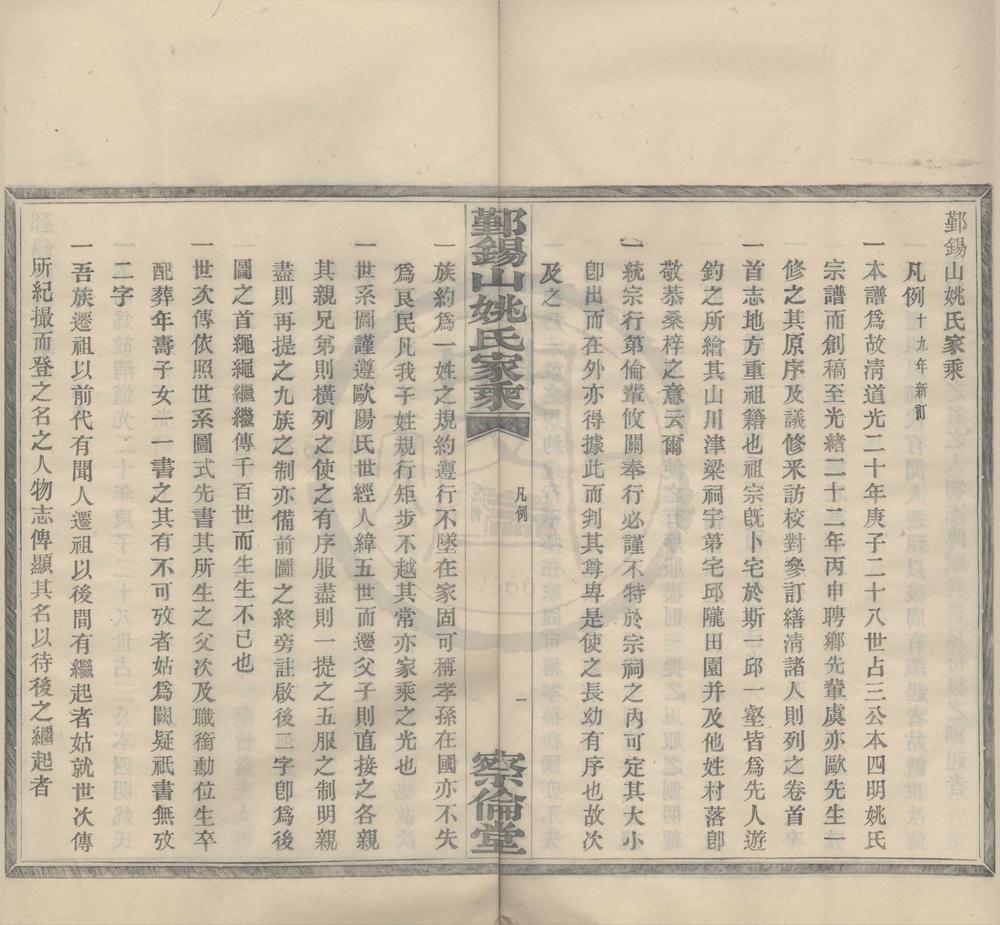 鄞錫山姚氏家乘
凡例十九年新訂
一本譜爲故淸道光二十年庚子二十八世占三公本四明姚氏
宗譜而創稿至光緖二十二年丙申聘鄉先輩虞亦歐先生一
修之其原序及議修釆訪校對參訂繕淸諸人則列之卷首
一首志地方重祖籍也祖宗旣卜宅於斯一邱一壑皆爲先人遊
釣之所繪其山川津梁祠宇第宅邱隴田園并及他姓村落卽
敬恭桑梓之意云爾
一統宗行第倫輩攸關奉行必謹不特於宗祠之內可定其大小
卽出而在外亦得據此而判其尊卑是使之長幼有序也故次
及之
鄞錫山姚氏家乘
凡例
一
察倫堂
一族約爲一姓之規約遵行不墜在家固可稱孝孫在國亦不失
爲良民凡我子姓規行矩步不越其常亦家乘之光也
一世系圖謹遵歐陽氏世經人緯五世而遷父子則直接之各親
其親兄弟則橫列之使之有序服盡則一提之五服之制明親
盡則再提之九族之制亦備前圖之終旁註啟後二字卽爲後
圖之首繩繩繼繼傳千百世而生生不已也
一世次傳依照世系圖式先書其所生之父次及職銜勳位生卒
配葬年壽子女一一書之其有不可攷者姑爲闕疑祇書無攷
二字
一吾族遷祖以前代有聞人遷祖以後間有繼起者姑就世次傳
所紀撮而登之名之人物志俾顯其名以待後之繼起者